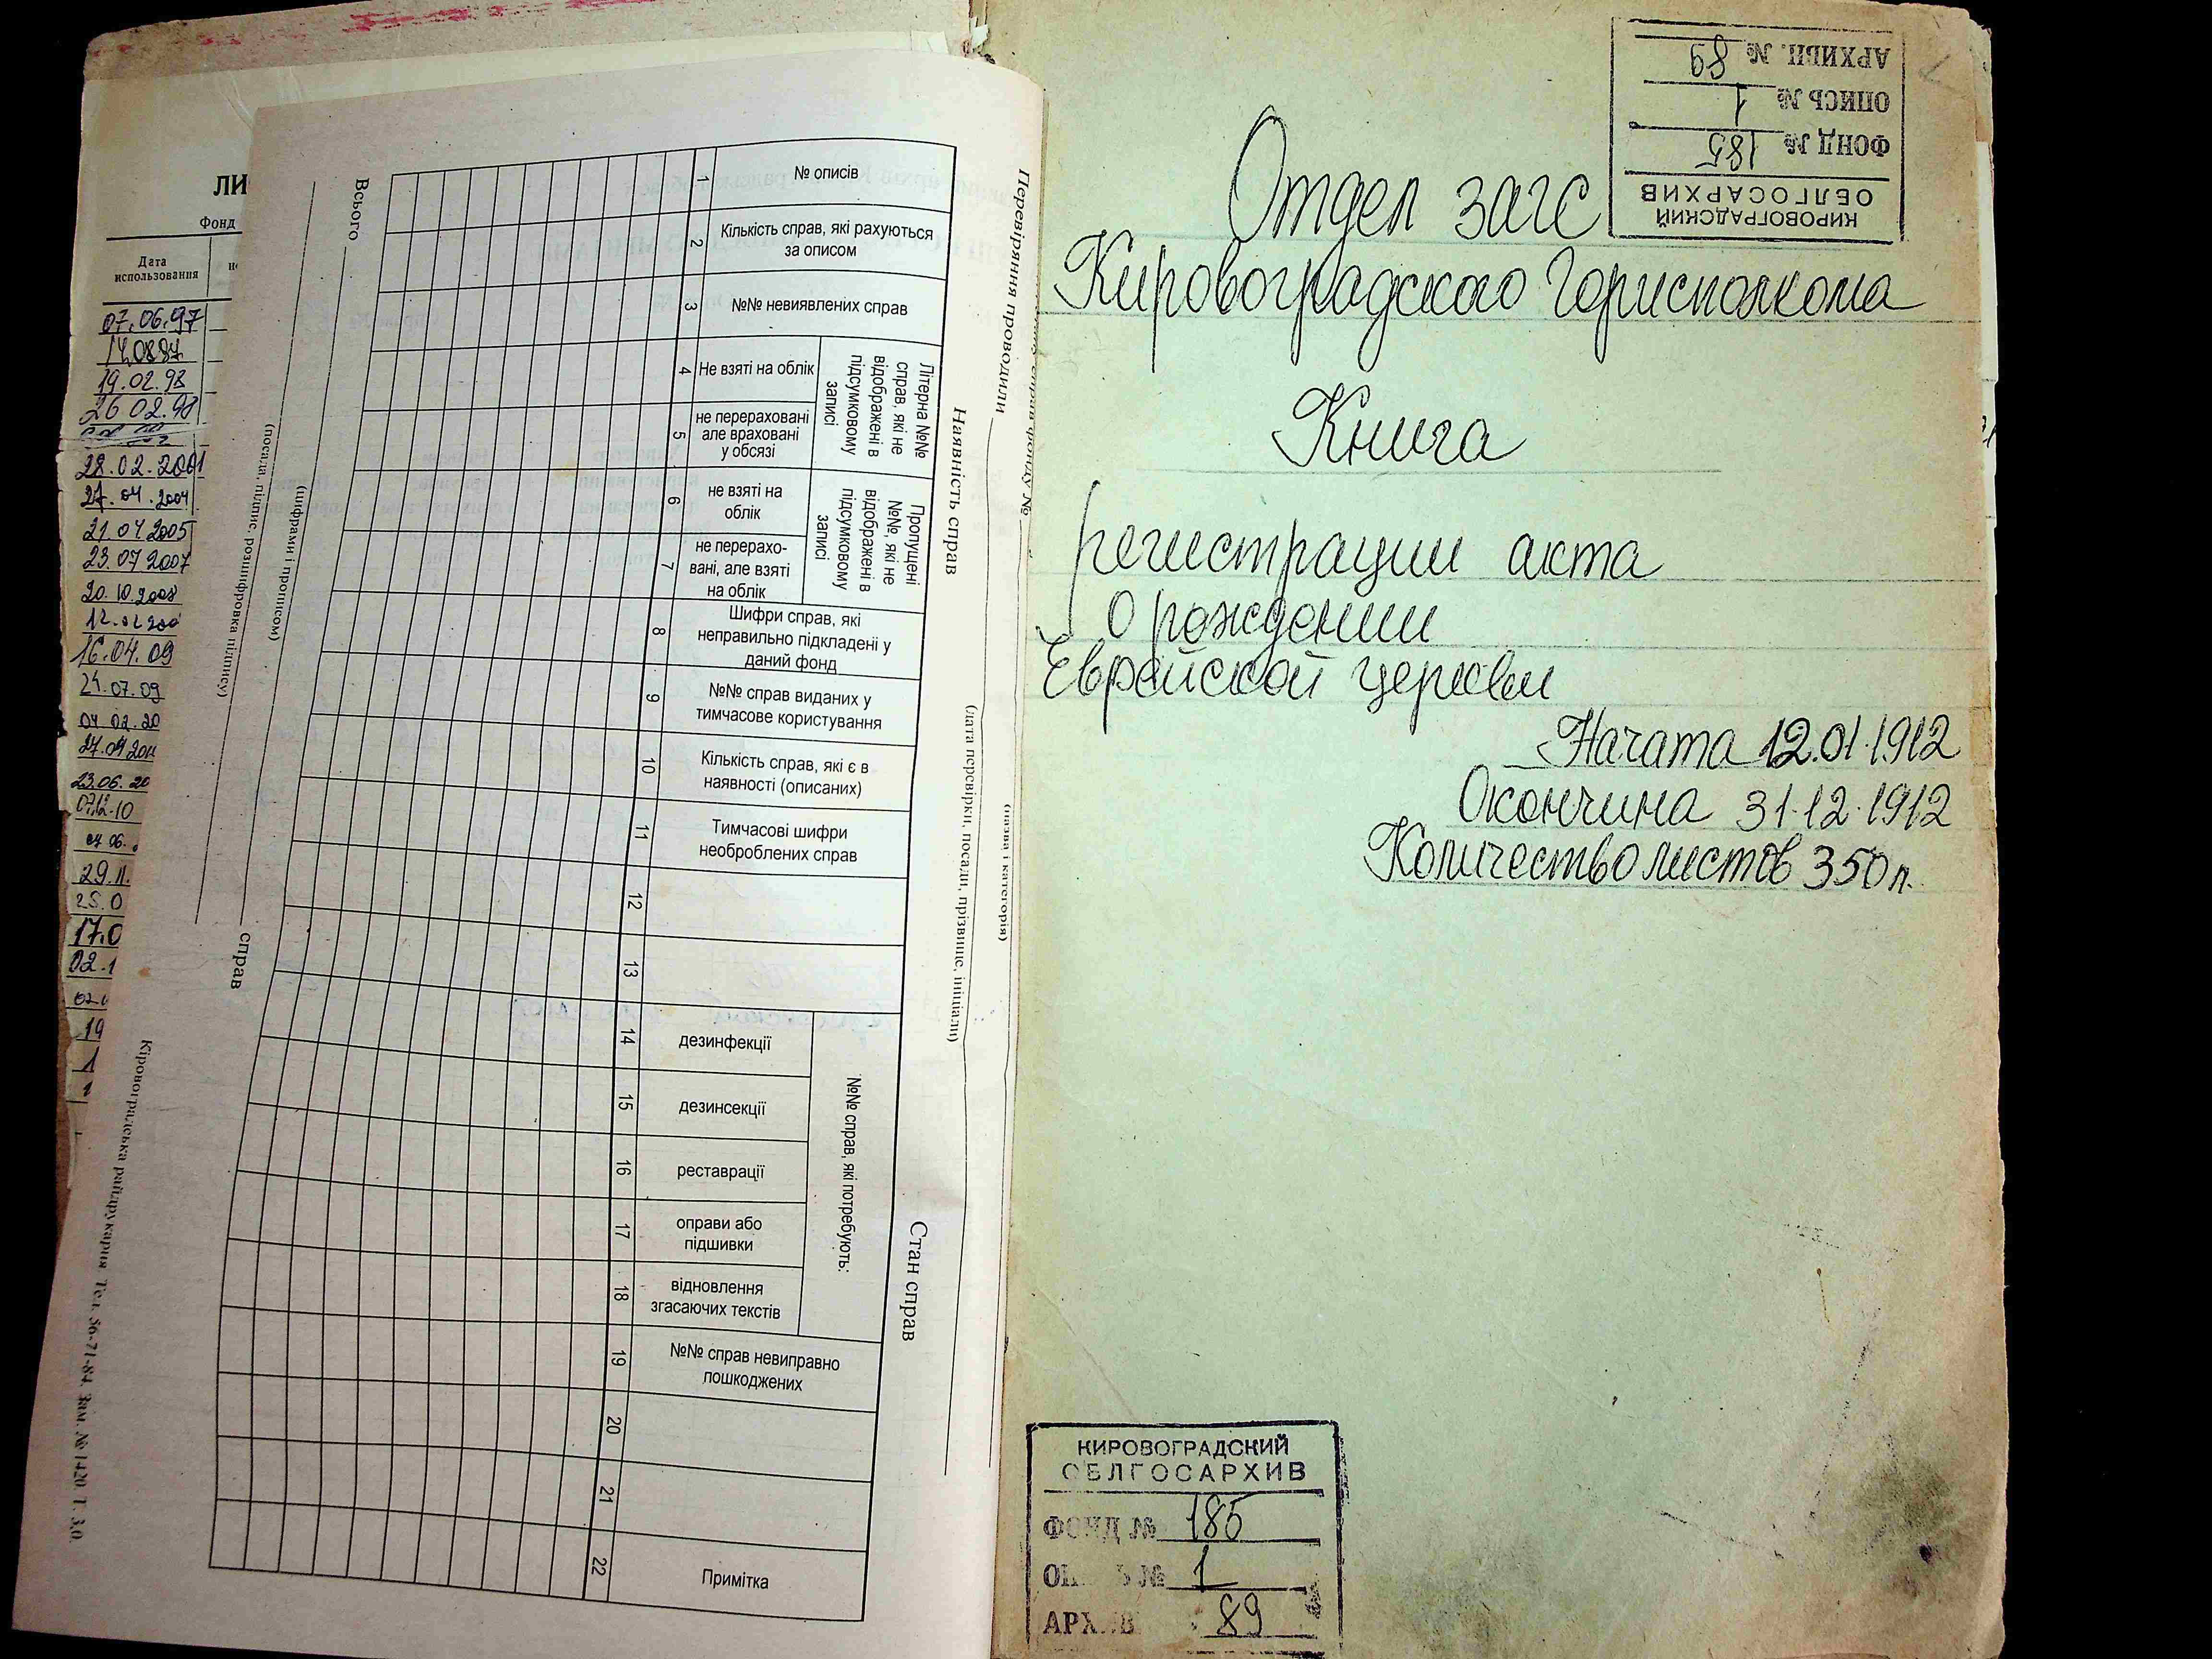 ЛИ
Фонд
Дата
использования
07.06.97
14.08.97
19.02.98
26 02.98
28.02.2001
27.04.2004
21.04.2005
23.07.2007
20.10.2008
16.04.09
24.07.09
04 02.20
23.06.20
07.12.10
29.11.
25.0
17.0
02.1
19
Перевіряння проводили
(назва і категорія)
(дата перевірки, посади, прізвище, ініціали)
Наявність справ
Стан справ
№ описів
Кількість справ, які рахуються
за описом
№№ невиявлених справ
Літерна №№
справ, які не
відображені в
підсумковому
записі
Не взяті на облік
не перераховані
але враховані
у обсязі
Пропущені
№№, які не
відображені в
підсумковому
записі
не взяті на
облік
не перерахо-
вані, але взяті
на облік
Шифри справ, які
неправильно підкладені у
даний фонд
№№ справ виданих у
тимчасове користування
Кількість справ, які є в
наявності (описаних)
Тимчасові шифри
необроблених справ
№№ справ, які потребують:
дезинфекції
дезинсекції
реставрації
оправи або
підшивки
відновлення
згасаючих текстів
№№ справ невиправно
пошкоджених
Примітка
1 2 3 4 5 6 7 8 9 10 11 12 13 14 15 16 17 18 19 20 21 22
Всього
справ
(цифрами і прописом)
(посада, підпис, розшифровка підпису)
Кіровоградська райдрукарня. Тел. 56-71-84. Зам. № 1420 Т. 3,0.
КИРОВОГРАДСКИЙ
ОБЛГОСАРХИВ
ФОНД № 185
ОПИСЬ № 1
АРХИВН. № 89
Отдел загс
Кировоградского Горисполкома
Книга
регистрации акта
о рождении
Еврейской церкви
Начата 12.01.1912
Окончина 31.12.1912
Количество листов 350 л.
КИРОВОГРАДСКИЙ
ОБЛГОСАРХИВ
ФОНД № 185
№ 1
89